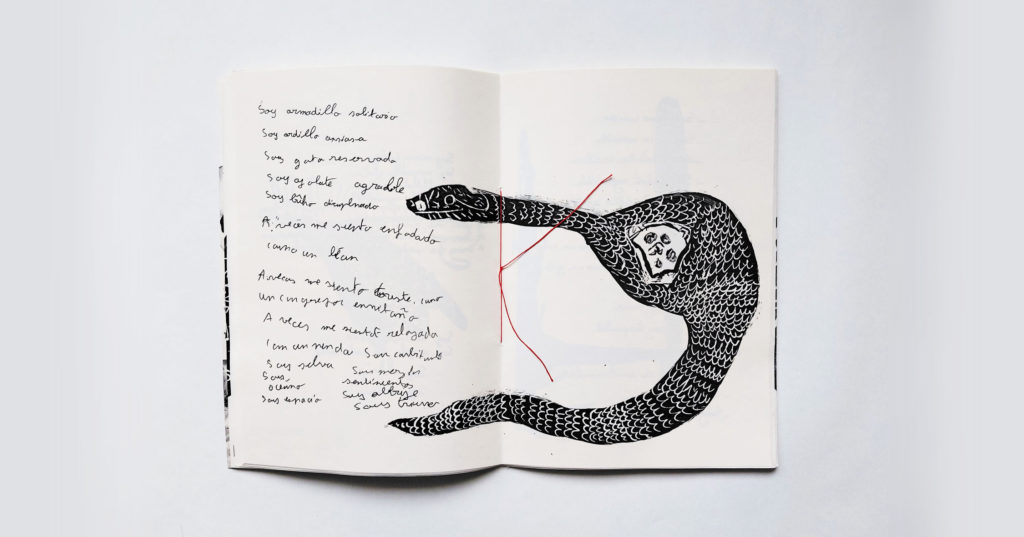 Soy armadillo solitario
Soy ardilla ansiosa
Soy gata reservada
Soy ajolote agradable
Soy búho disciplinado
A veces me siento enfadado
como un león
A veces me siento triste, como
un cangrejo ermitaño
A veces me siento relajada
Soy selva Soy mezcla
Soy sentimientos
océano Soy
Soy espacio Soy